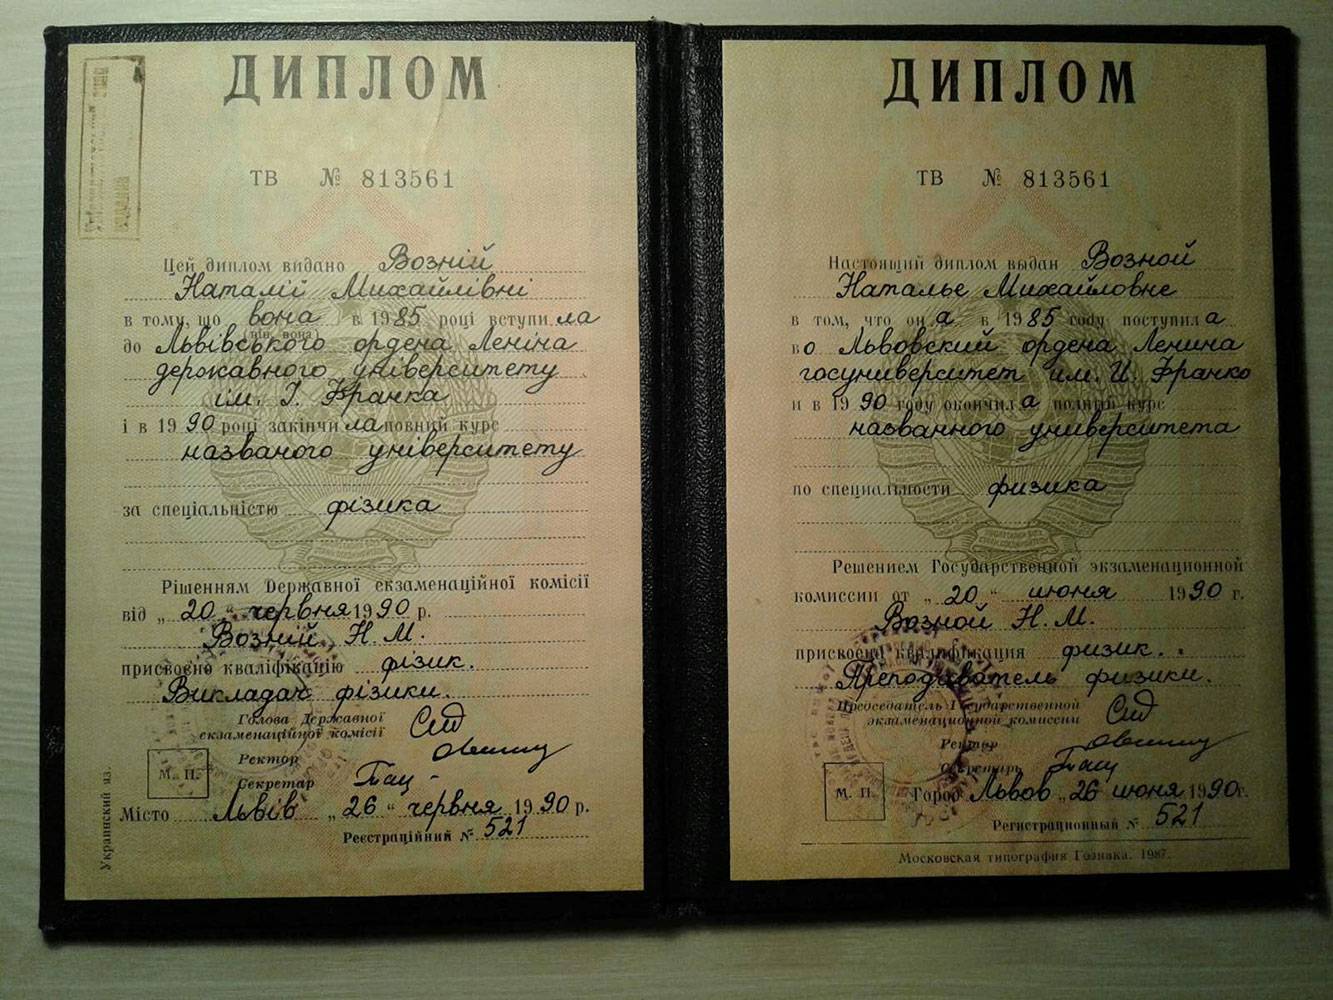 ДИПЛОМ
ТВ № 813561
Цей диплом видано Возній
Наталії Михайлівні
в тому, що вона в 1985 році вступила
(він, вона)
до Львівського ордена Леніна
державного університету
ім. І. Франка
і в 1990 році закінчила повний курс
названого університету
за спеціальністю фізика
Рішенням Державної екзаменаційної комісії
від „20“ червня 1990 р.
Возній Н.М.
присвоєно кваліфікацію фізик.
Викладач фізики.
Голова Державної
екзаменаційної комісії
Ректор
Секретар
М. П.
Місто Львів „26“ червня 1990 р.
Реєстраційний № 521
Украинский яз.
ДИПЛОМ
ТВ № 813561
Настоящий диплом выдан Возной
Наталье Михайловне
в том, что она в 1985 году поступила
во Львовский ордена Ленина
госуниверситет им. И. Франко
и в 1990 году окончила полный курс
названного университета
по специальности физика
Решением Государственной экзаменационной
комиссии от „20“ июня 1990 г.
Возной Н.М.
присвоена квалификация физик.
Преподаватель физики.
Председатель Государственной
экзаменационной комиссии
Ректор
Секретарь
М. П.
Город Львов „26 июня 1990г.
Регистрационный № 521
Московская типография Гознака. 1987.